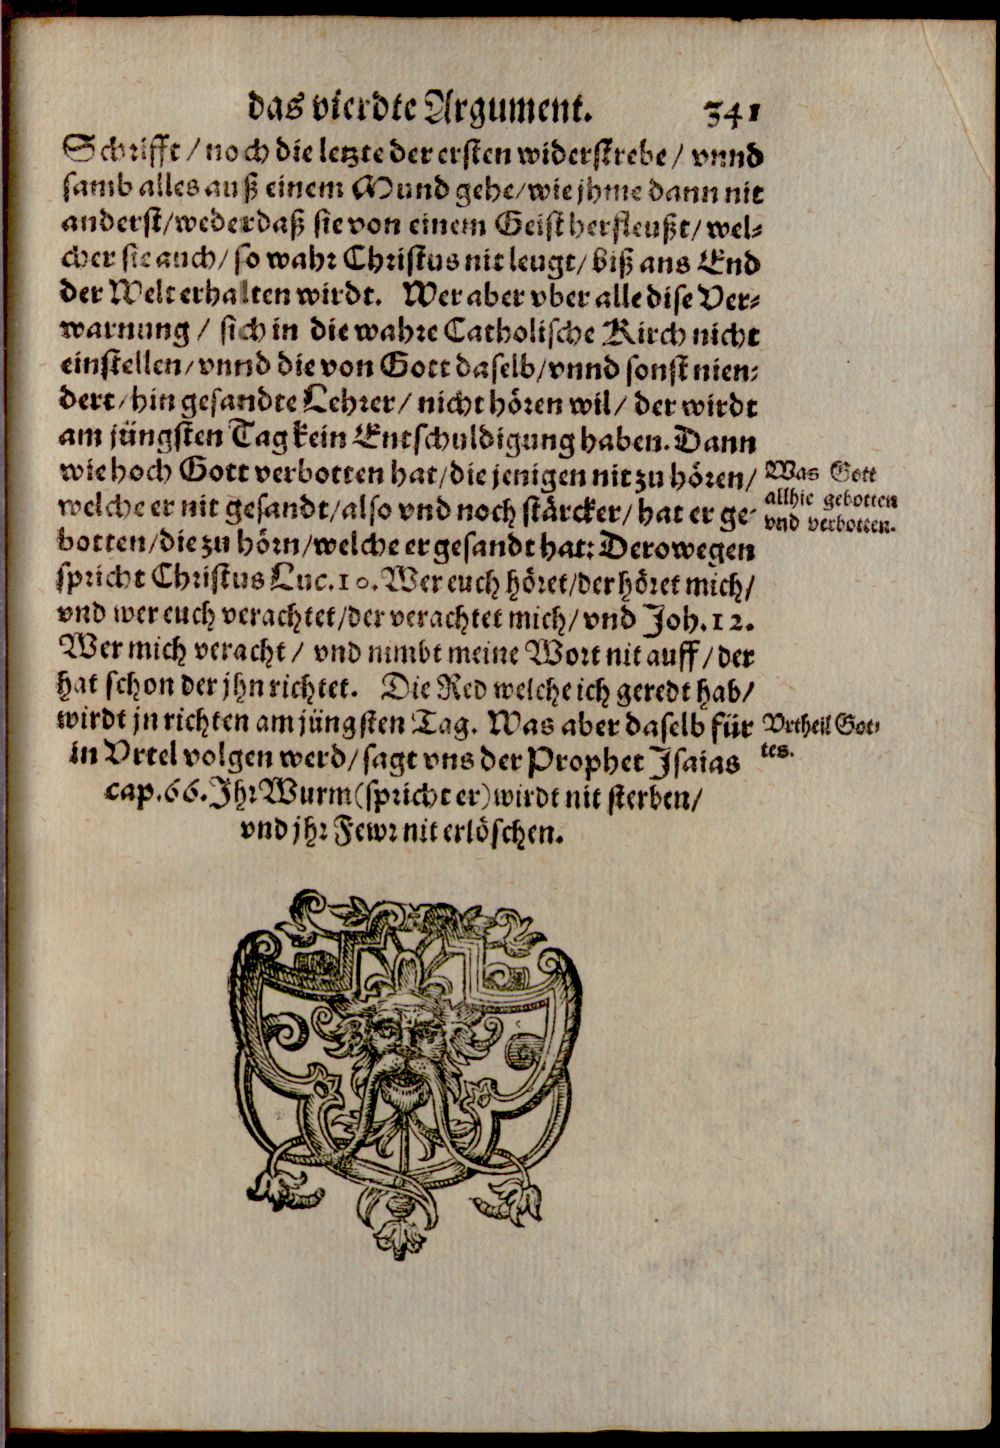 das vierdte Argument. 341
Schrifft / noch die letzte der ersten widerstrebe / vnnd
samb alles auß einem Mund gehe / wie jhme dann nit
anderst / weder daß sie von einem Geist herfleußt / wel⸗
cher sie auch / so wahr Christus nit leugt / biß ans End
der Welt erhalten wirdt. Wer aber vber alle dise Ver⸗
warnung / sich in die wahre Catholische Kirch nicht
einstellen / vnnd die von Gott daselb / vnnd sonst nien⸗
dert / hin gesandte Lehrer / nicht hören wil / der wirdt
am jüngsten Tag kein Entschuldigung haben. Dann
wie hoch Gott verbotten hat / die jenigen nit zu hören /
welche er nit gesandt / also vnd noch stärcker / hat er ge⸗
botten / die zu hörn / welche er gesandt hat: Derowegen
spricht Christus Luc. 10. Wer euch höret / der höret mich /
vnd wer euch verachtet / der verachtet mich / vnd Joh. 12.
Wer mich veracht / vnd nimbt meine Wort nit auff / der
hat schon der jhn richtet. Die Red welche ich geredt hab /
wirdt jn richten am jüngsten Tag. Was aber daselb für
in Vrtel volgen werd / sagt vns der Prophet Isaias
cap. 66. Jhr Wurm (spricht er) wirdt nit sterben /
vnd jhr Fewr nit erlöschen.
Was Gott
allhie gebotten
vnd verbotten.
Vrtheil Got⸗
tes.